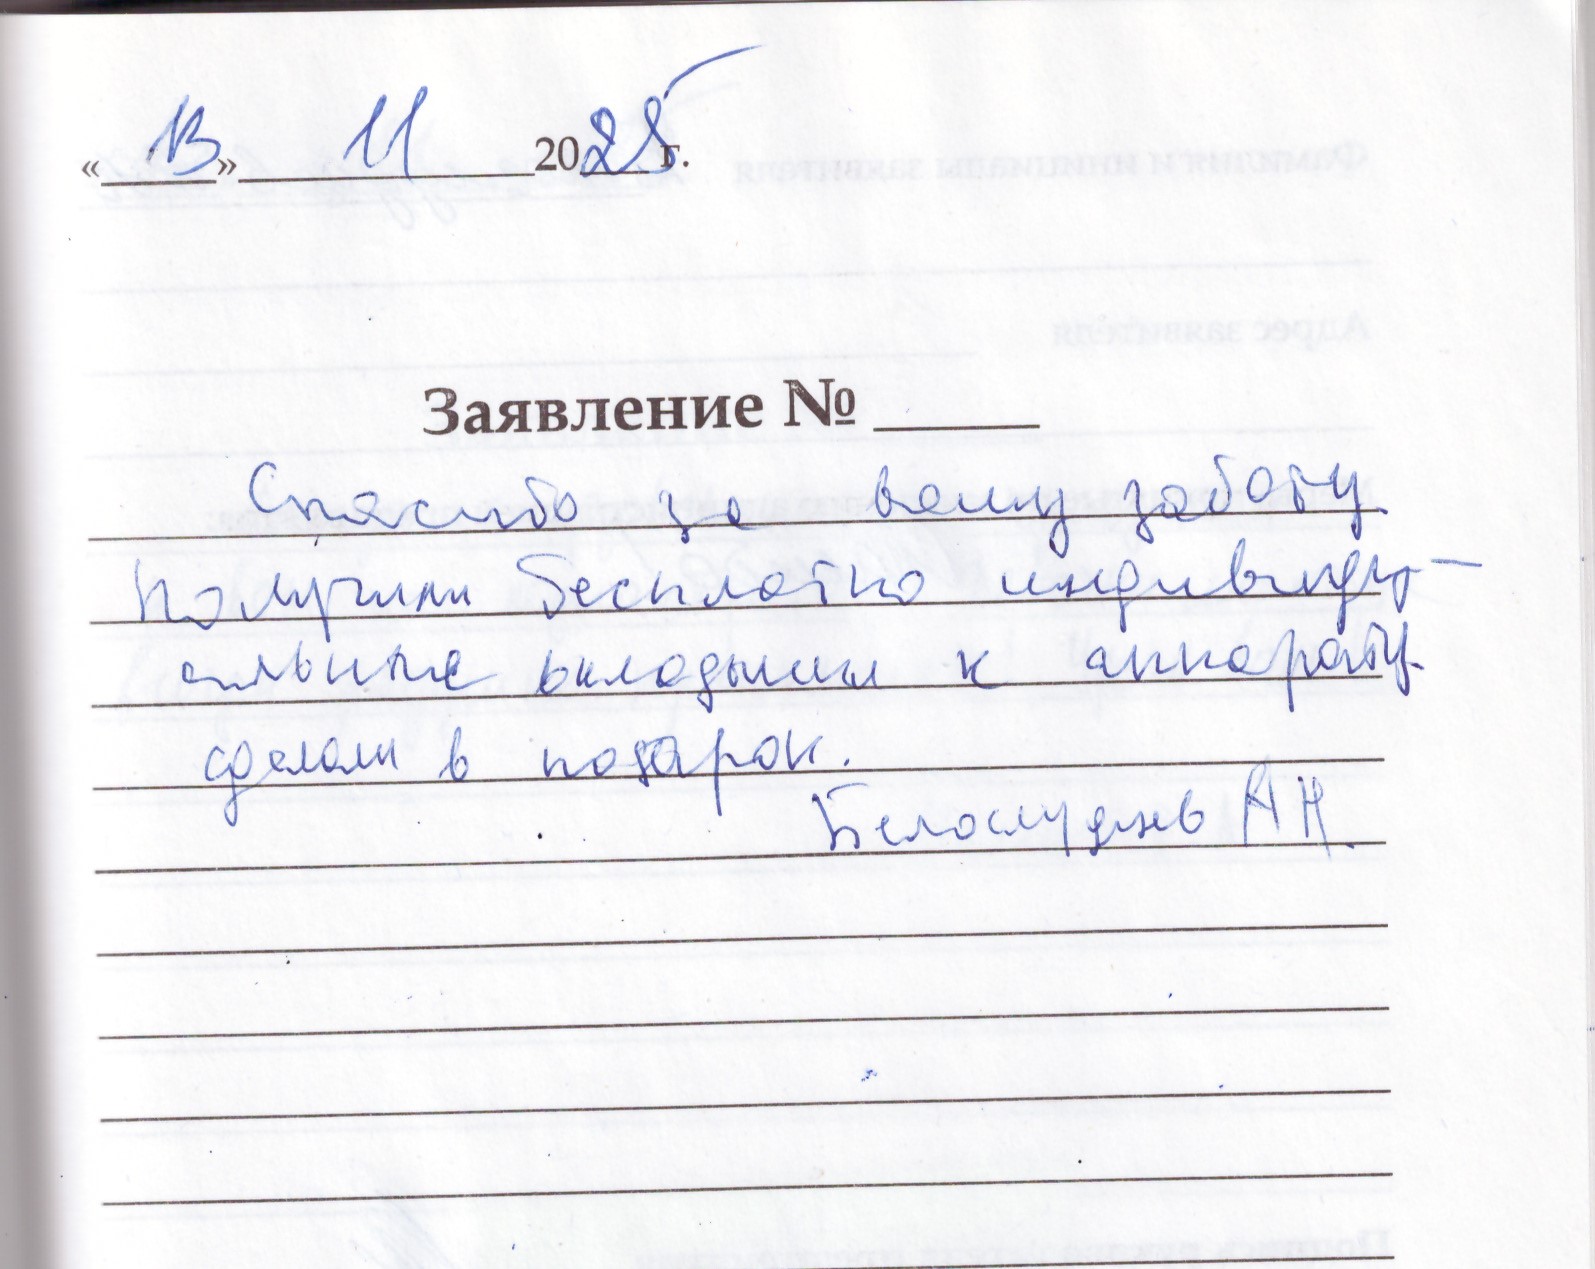 «13» 11 2025 г.
Заявление № _____
Спасибо за вашу заботу.
Получили бесплатно индивиду-
альные вкладыши к аппарату.
сделали в подарок.
Белослудцев А Н.